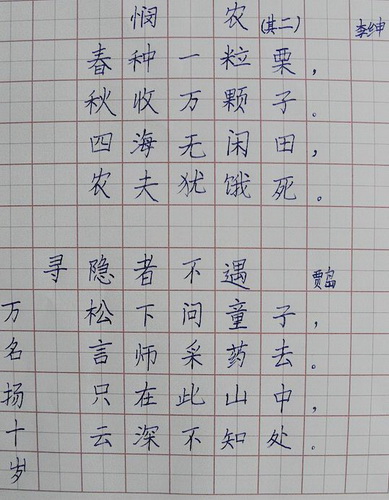 悯农(其二) 李绅
春种一粒栗，
秋收万颗子。
四海无闲田，
农夫犹饿死。
寻隐者不遇 贾岛
松下问童子，
言师采药去。
只在此山中，
云深不知处。
万名扬十岁